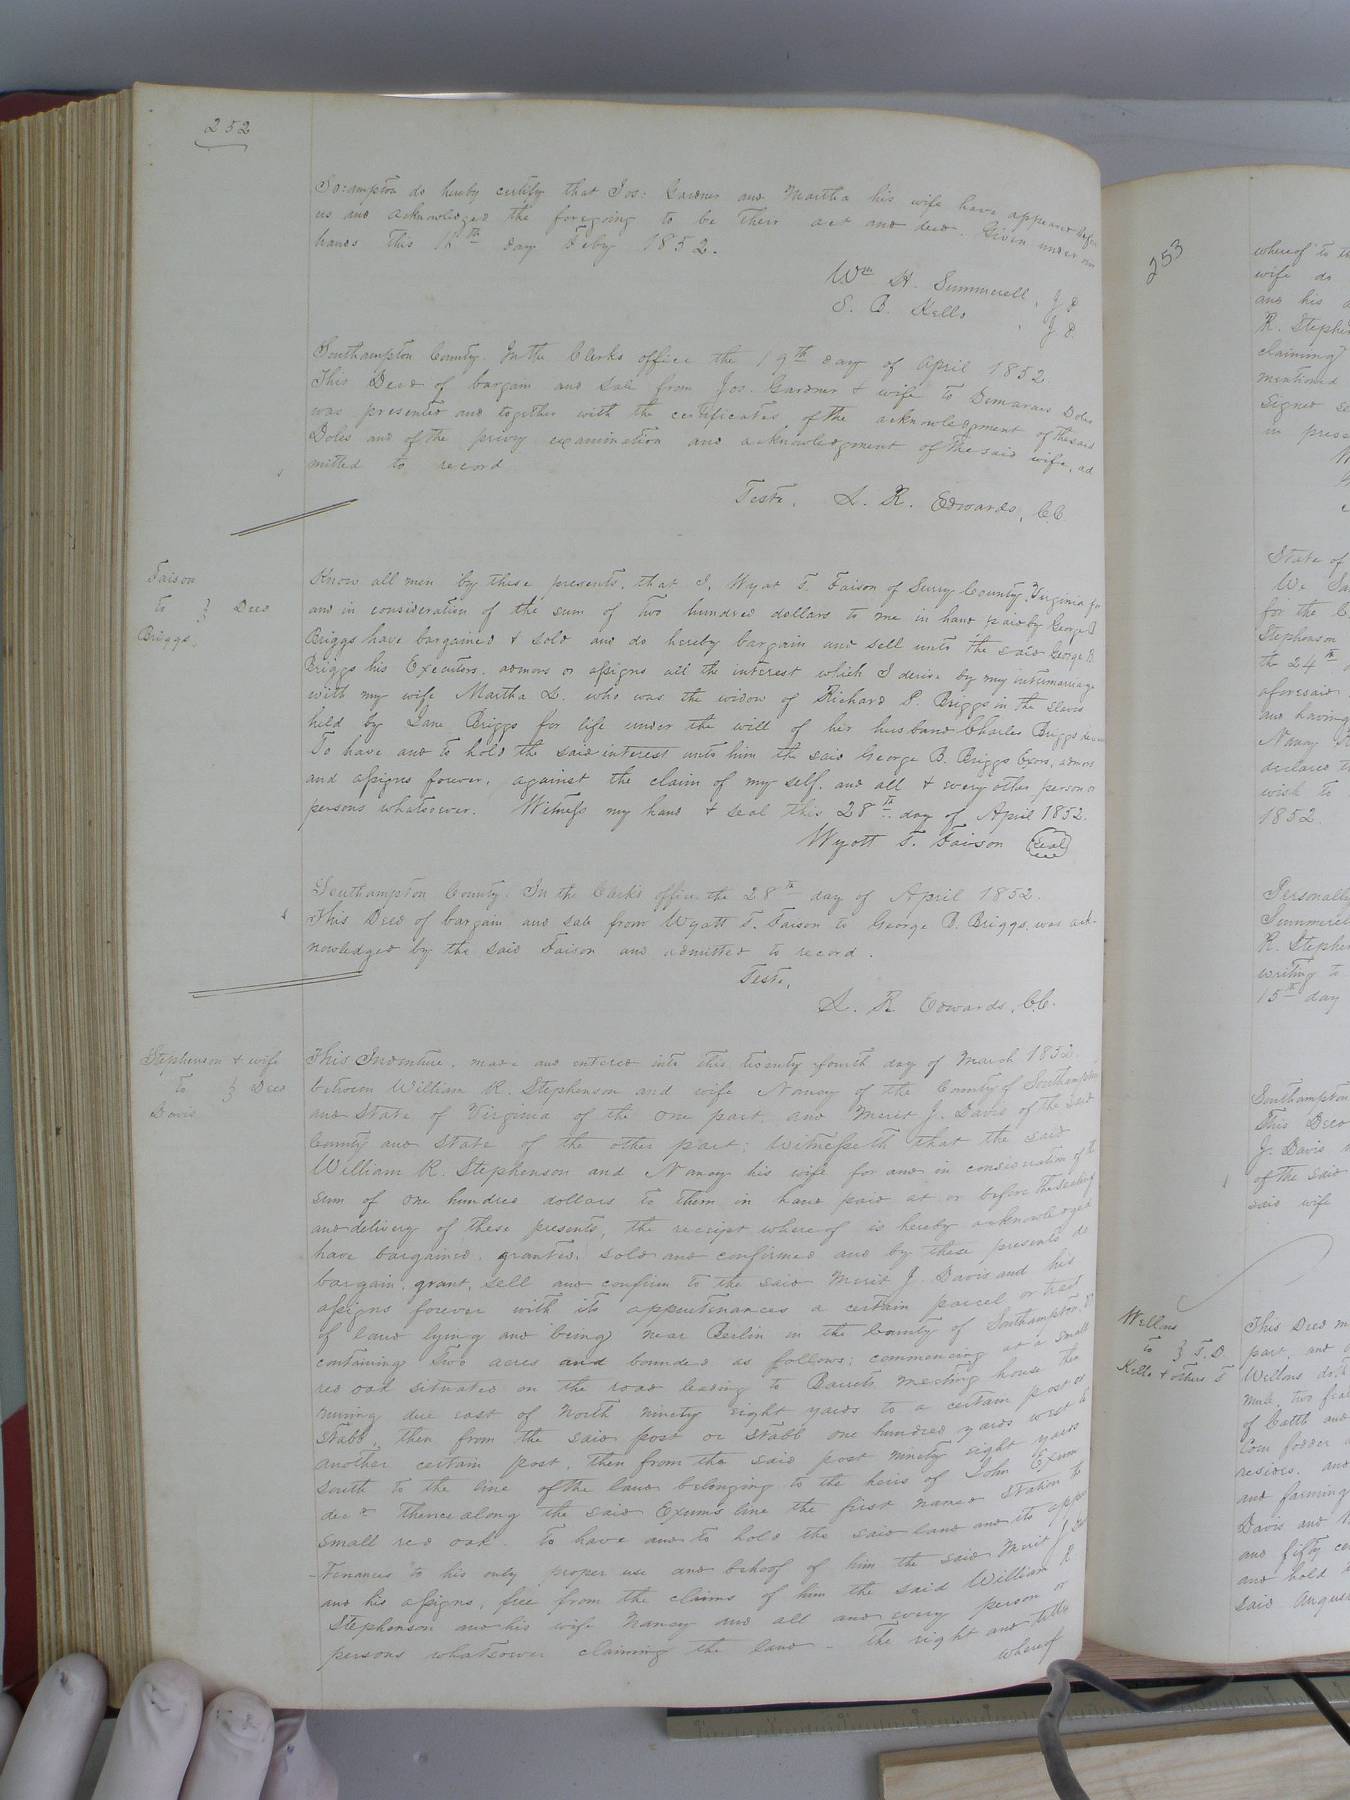 252
So:ampton do hereby certify that Jos: Gardner and Martha his wife have appeared before
us and acknowledged the foregoing to be their act and deed. Given under our
hands this day Feby 1852.
Wm H. Summerell, J P
S. B. Kello, J P.
Southampton County. In the Clerks office the 19th day of April 1852
This Deed of bargain and sale from Jos. Gardner & wife to Demaraus Doles
was presented and together with the certificates of the acknowledgment of the said
Doles and of the privy examination and acknowledgment of the said wife, ad
mitted to record
Teste, L. R. Edwards, C.C.
Faison
to } Deed
Briggs.
Know all men by these presents, that I, Wyat T. Faison of Surry County, Virginia for
and in consideration of the sum of two hundred dollars to me in hand paid by George B
Briggs have bargained & sold and do hereby bargain and sell unto the said George B.
Briggs his Executors, admors or assigns all the interest which I derive by my intermarriage
with my wife Martha L. who was the widow of Richard P. Briggs in the slaves
held by Jane Briggs for life under the will of her husband Charles Briggs
To have and to hold the said interest unto him the said George B. Briggs Exors, admors
and assigns forever, against the claim of my self. and all & every other person or
persons whatsoever. Witness my hand & seal this 28th day of April 1852.
Wyatt T. Faison Seal
Southampton County. In the Clerk's office the 28th day of April 1852.
This Deed of bargain and sale from Wyatt T. Faison to George B. Briggs, was ack-
nowledged by the said Faison and admitted to record.
Teste,
L. R Edwards, C.C.
Stephenson & wife
to } Deed
Davis
This Indenture, made and entered into this twenty fourth day of March 1852.
between William R. Stephenson and wife Nancy of the County of Southampton
and State of Virginia of the one part. and Merit J. Davis of the said
County and State of the other part; Witnesseth that the said
William R. Stephenson and Nancy his wife for and in consideration of the
sum of one hundred dollars to them in hand paid at or before the sealing
and delivery of these presents, the receipt whereof is hereby acknowledged
have bargained, granted, sold and confirmed and by these presents do
bargain, grant, sell and confirm to the said Merit J. Davis and his
assigns forever with its appurtenances a certain parcel or tract
of land lying and being near Berlin in the County of Southampton, &
containing Two acres and bounded as follows; commencing at a small
red oak situated on the road leading to Barrets meeting house then
running due east of North ninety eight yards to a certain post or
Stabb, then from the said post or Stabb one hundred yards west to
another certain post, then from the said post ninety eight yards
South to the line of the land belonging to the heirs of John Exum
dec'd thence along the said Exum's line the first named station the
small red oak. to have and to hold the said land and its appur
-tenances to his only proper use and behoof of him the said Merit J.
and his assigns, free from the claims of him the said William R.
Stephenson and his wife Nancy and all and every person or
persons whatsoever claiming the land - the right and title
whereof
253
whereof to
wife do
and his
R. Stephen
claiming
mentioned
Signed
in pres
State of
We
for the
Stephenson
the 24th
aforesaid
and having
Nancy
declared
wish to
1852.
Personally
Summerell
R. Stephen
writing to
15th day
Southampton
This Deed
J. Davis
of the said
said wife
Wellons
to } T. D.
Kello & others
This Deed
part, and
Wellons doth
mule two
of Cattle and
Corn fodder
resides, and
and farming
Davis and
and fifty
and hold
said